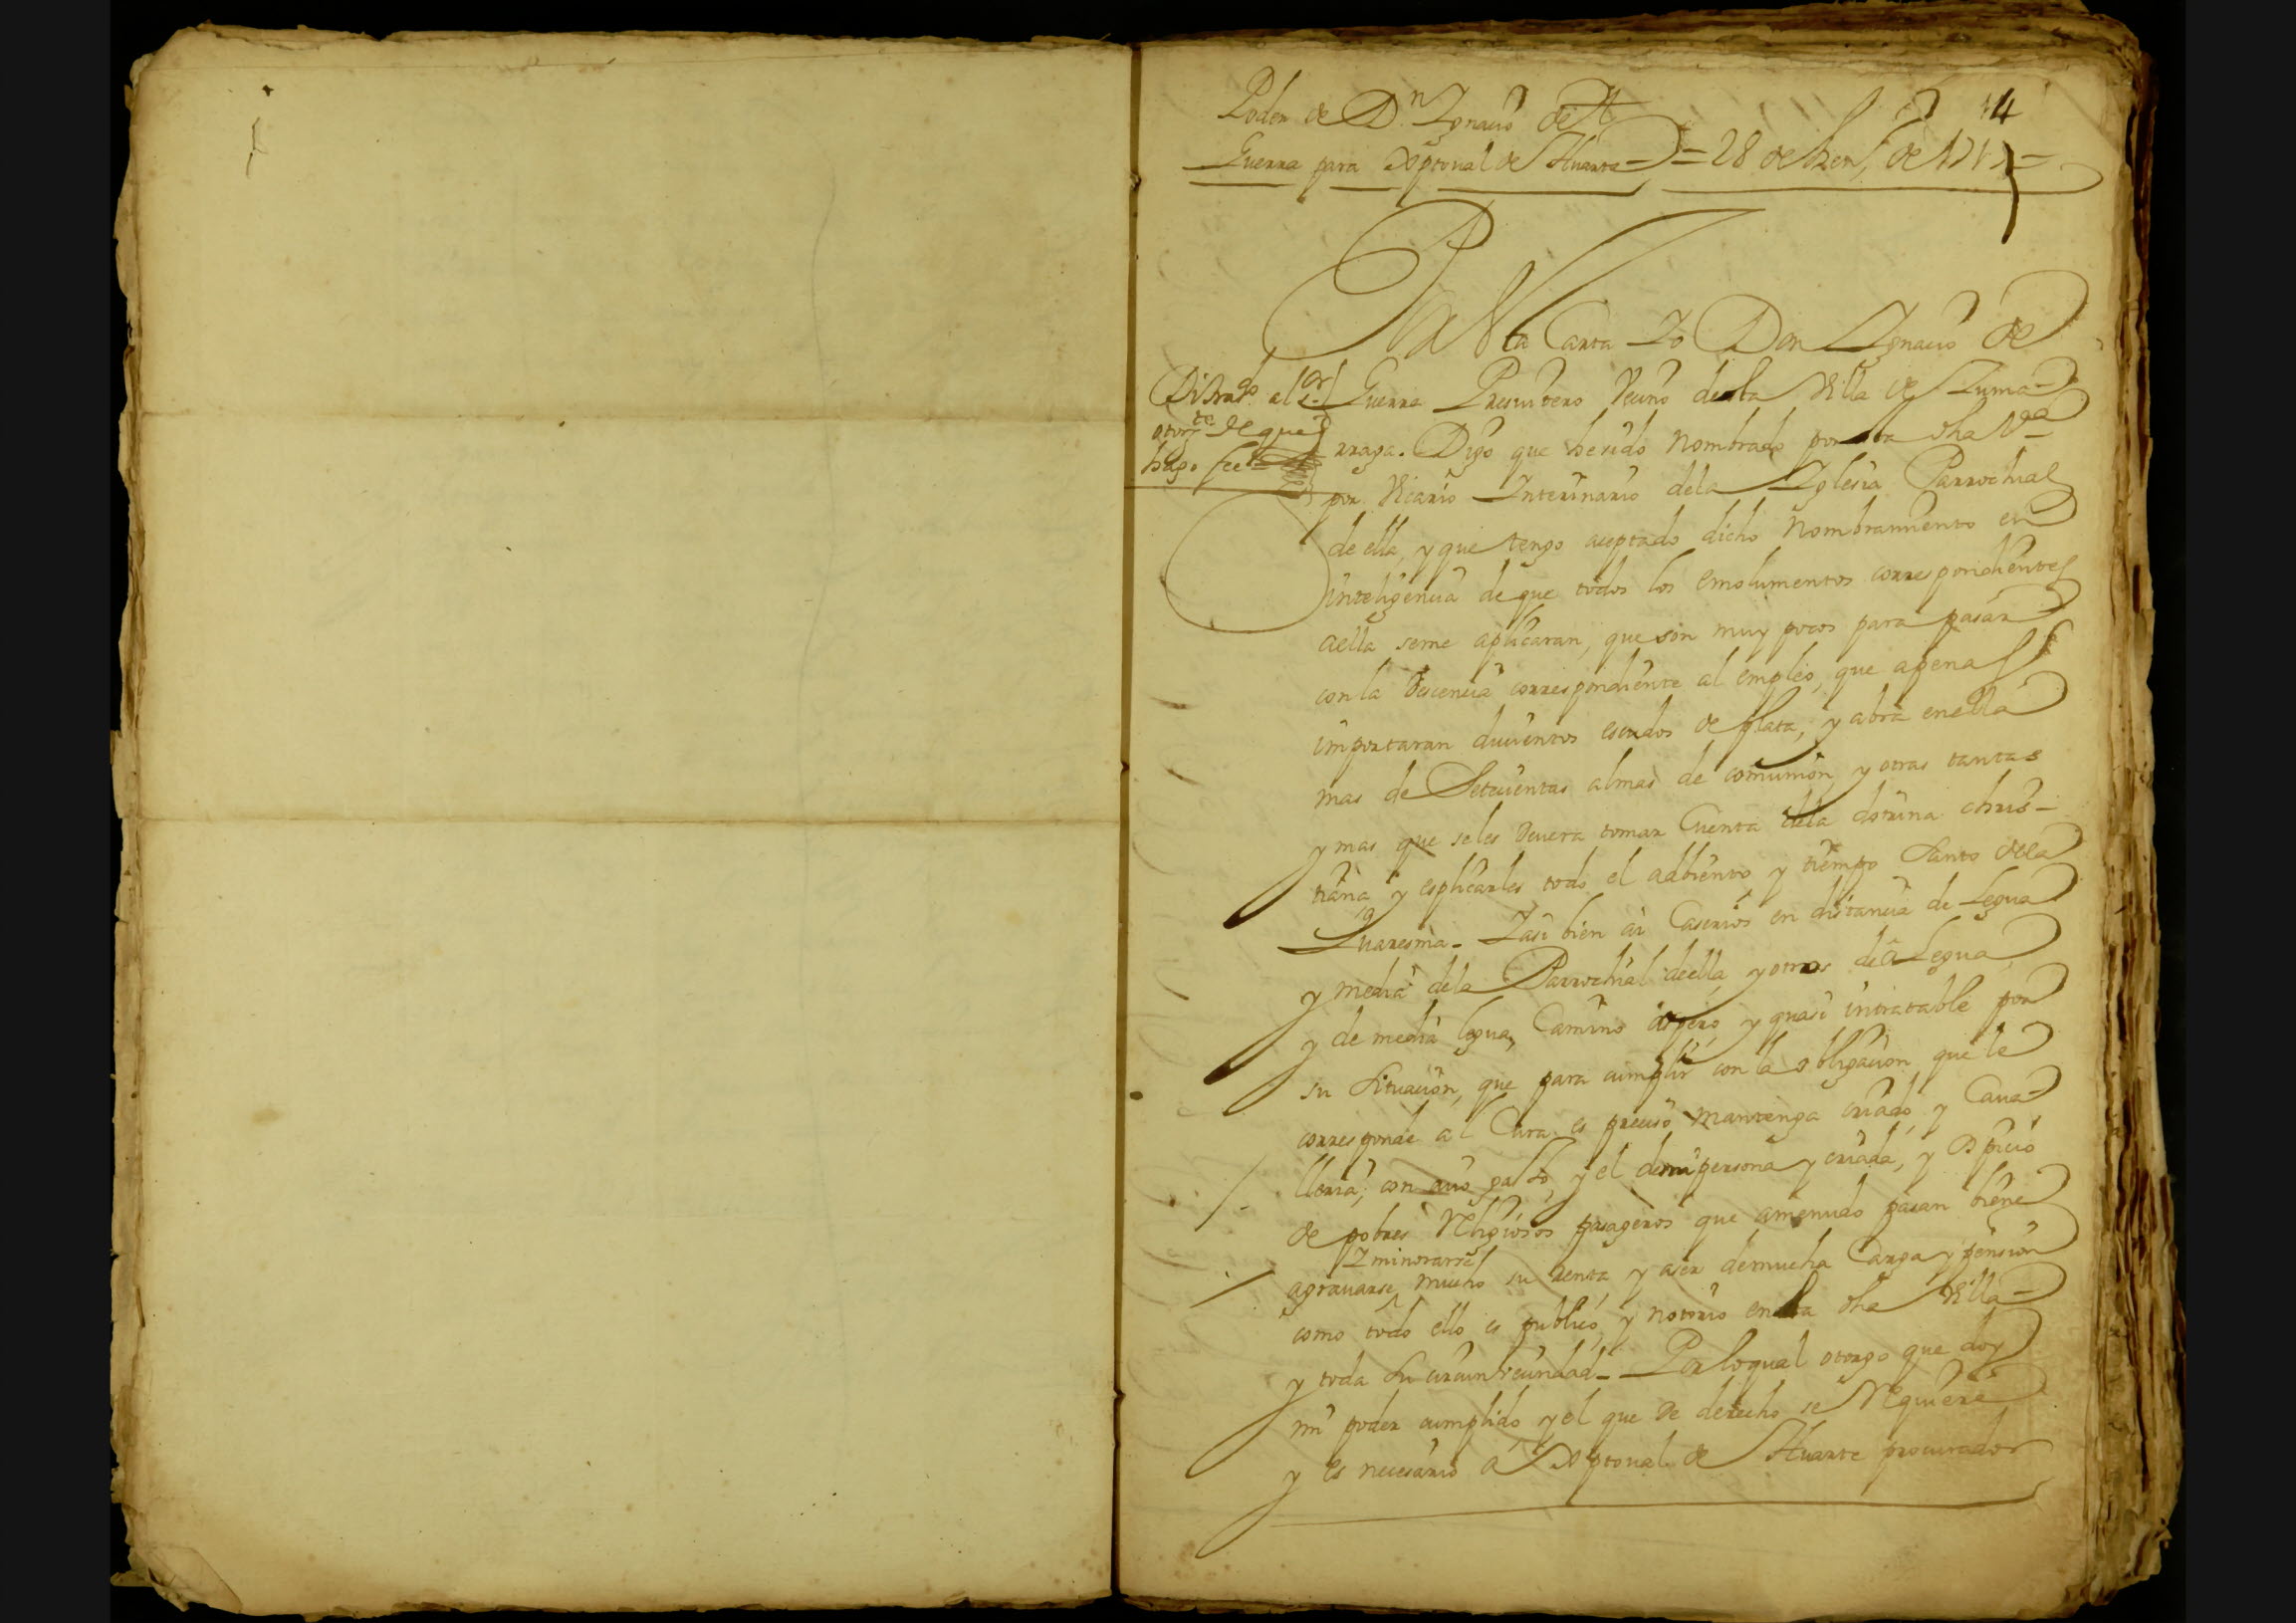 14
Poder de Dn. Ygnacio de
Guerra para Xptoual de Huarte = 28 de hen.º de 1715 =
Sea Esta Carta Yo Don Ygnacio de
Guerra Presuitero Veçino desta Villa de Zuma=
rraga. Digo que he sido nombrado por esta dha Va.
por Vicario Interinario dela Yglesia Parrochial
de ella, y que tengo aceptado dicho nombramiento en
inteligencia de que todos los emolumentos correspondientes
aella seme aplicaran, que son muy pocos para pasar
con la desencia correspondiente al empleo, que apenas
importaran ducientos escudos de plata, y abra enella
mas de Setecientas almas de comunion y otras tantas
y mas que seles devera tomar Cuenta dela dotrina chris-
tiana y esplicarles todo el adbiento y tiempo Santo dela
Quaresma - Yasi bien ai Caserios en distancia de Legua
y media dela Parrochial deella, y otros de a Legua,
y de media legua, Camino aspero, y quasi intratable por
su Situacion, que para cumplir con la obligacion que le
corresponde al Cura es preciso mantenga criado, y Caua
lleria, con cuio gasto, y el demi persona y criada, y Ospicio
de pobres Religiosos pasageros que amenudo pasan biene
Yminorarse
agrauarse mucho su renta, y aser demucha Carga y pension
como todo ello es publico, y notorio enesta dha Villa
y toda su circunvecindad - Por loqual otorgo que doy
mi poder cumplido, y el que de derecho se Requiere
y es necesario a Xptoual de Huarte procurador
Di trasdo. al Sor.
otorte. de que
hago fee